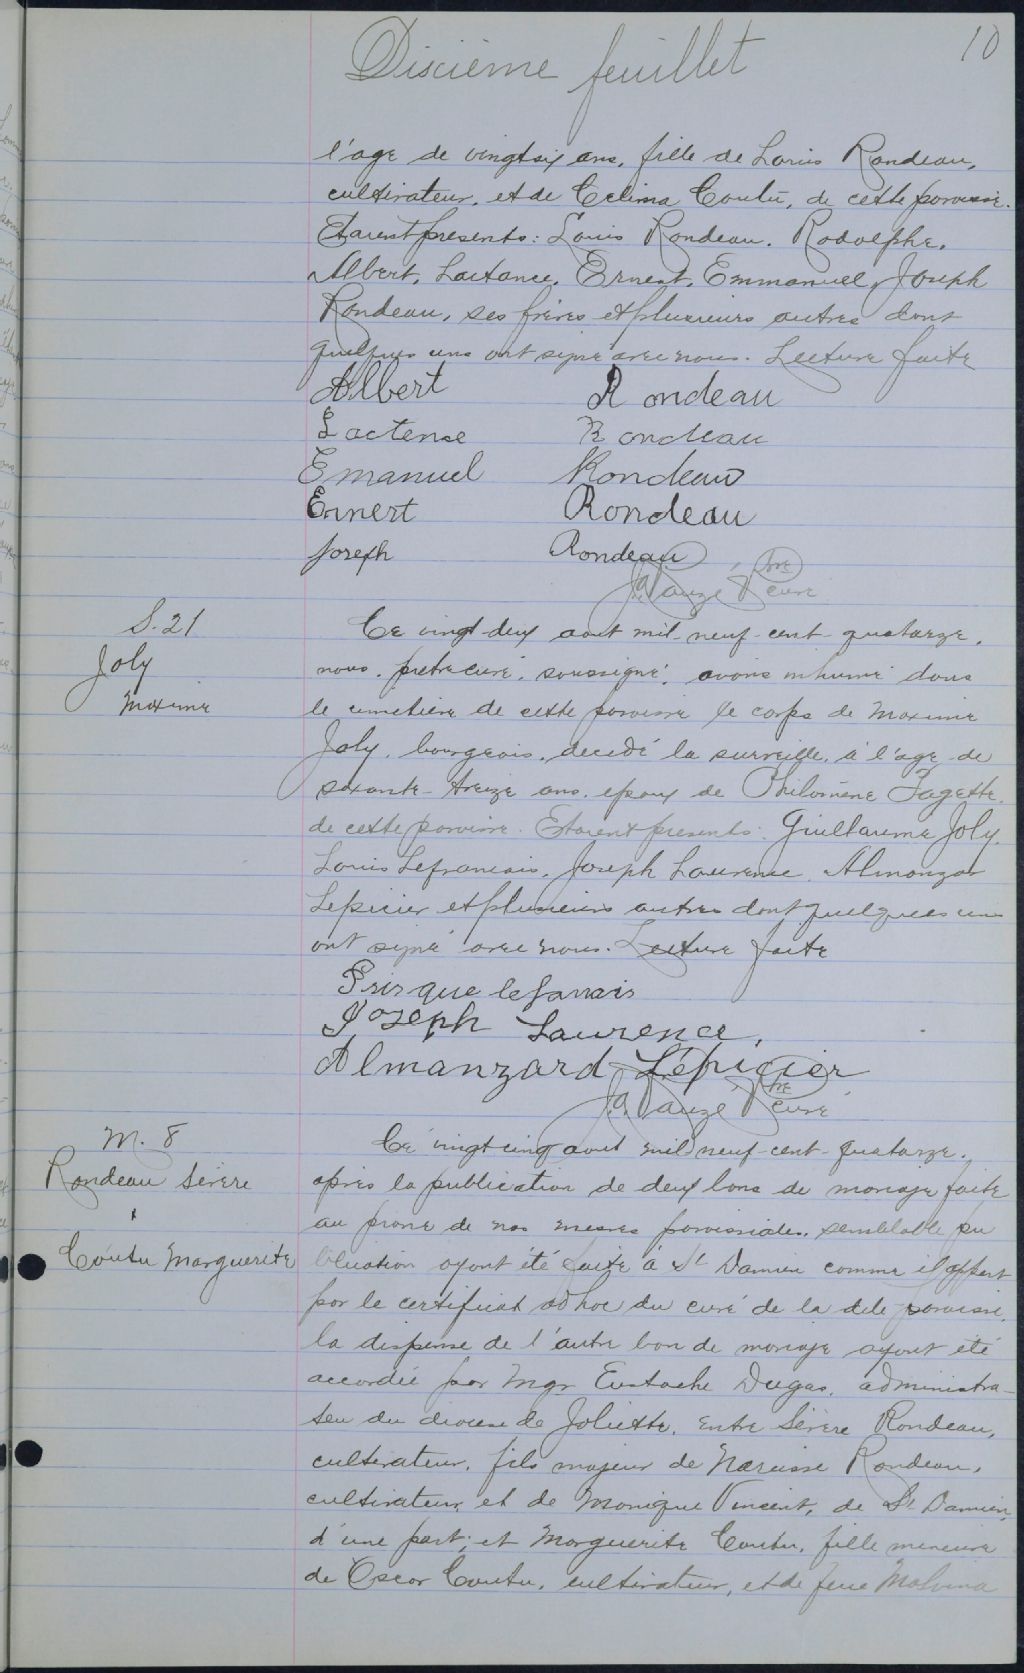 10
Dixième feuillet
l'age de vingt six ans, fille de Louis Rondeau,
cultivateur, et de Celima Coutu, de cette paroisse.
Etaient presents: Louis Rondeau. Rodolphe,
Albert, Lactance, Ernest, Emmanuel, Joseph
Rondeau, ses frères et plusieurs autres dont
quelques uns ont signé avec nous. Lecture faite
Albert Rondeau
Lactense Rondeau
Emanuel Rondeau
Ernert Rondeau
Joseph Rondeau
J.A. Pauzé Ptre curé
S. 21
Joly
Maxime
Ce vingt deux aout mil-neuf-cent-quatorze,
nous, pretre curé, soussigné, avons inhumé dans
le cimetière de cette paroisse le corps de Maxime
Joly, bourgeois, decedé la surveille, à l'age de
soixante-treize ans, epoux de Philomène Fagette,
de cette paroisse. Etaient presents: Guillaume Joly,
Louis Lefrancois, Joseph Laurence, Almonzor
Lepicier et plusieurs autres dont quelques uns
ont signé avec nous. Lecture faite
Prisque lefanais
Joseph Laurence,
Almanzard Lépicier
J.A. Pauzé Ptre curé
M. 8
Rondeau Sévère
&
Coutu Marguerite
Ce vingt cinq aout mil neuf-cent-quatorze,
après la publication de deux bans de mariage faite
au prone de nos messes paroissiales, semblable pu
blication ayant été faite à St Damien comme il appert
par le certificat ad hoc du curé de la dite paroisse,
la dispense de l'autre ban de mariage ayant été
accordée par Mgr Eustache Dugas, administra-
teur du diocèse de Joliette, entre Sévère Rondeau,
cultivateur, fils majeur de Narcisse Rondeau,
cultivateur, et de Monique Vincent, de St Damien,
d'une part; et Marguerite Coutu, fille mineure
de Oscar Coutu, cultivateur, et de feue Malvina